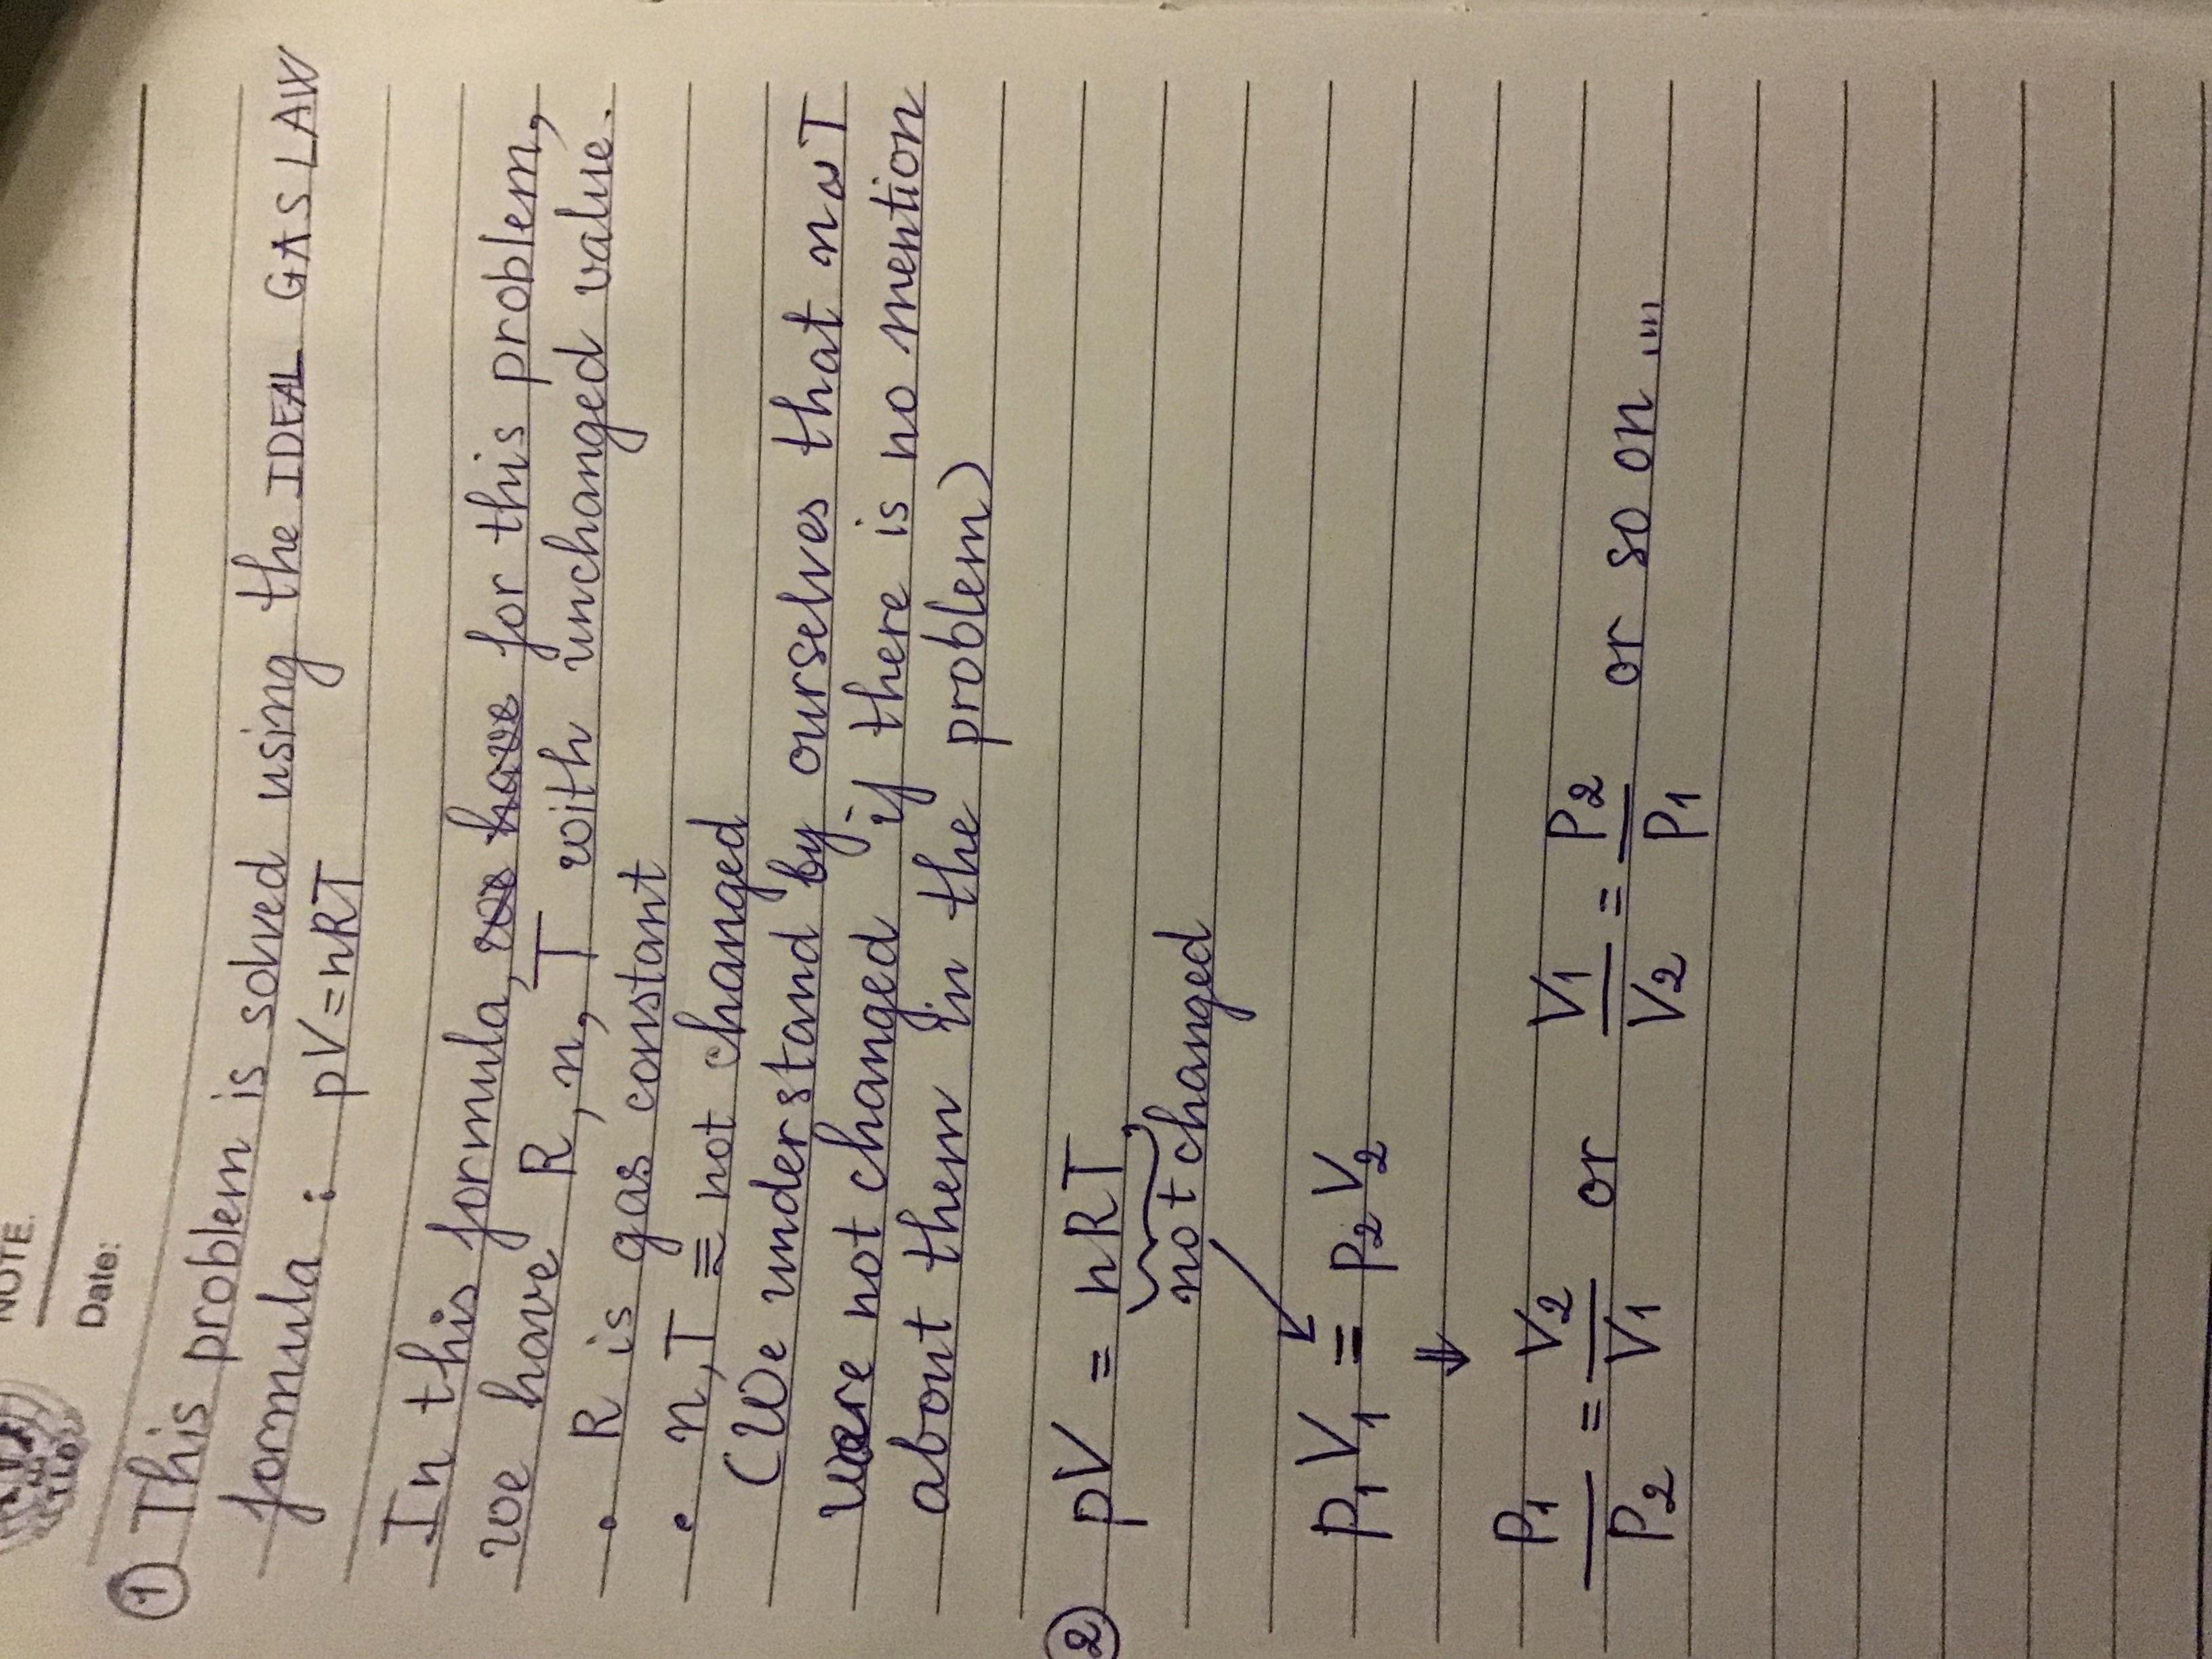 NOTE.
Date:
① This problem is solved using the IDEAL GAS LAW
formula : pV = nRT
In this formula, we have for this problem,
we have R, n, T with unchanged value.
• R is gas constant
• n, T ≡ not changed
(We understand by ourselves that n T
were not changed if there is no mention
about them in the problem)
② pV = nRT
not changed
P₁V₁ = P₂V₂
⇓
P₁/P₂ = V₂/V₁ or V₁/V₂ = P₂/P₁ or so on ...